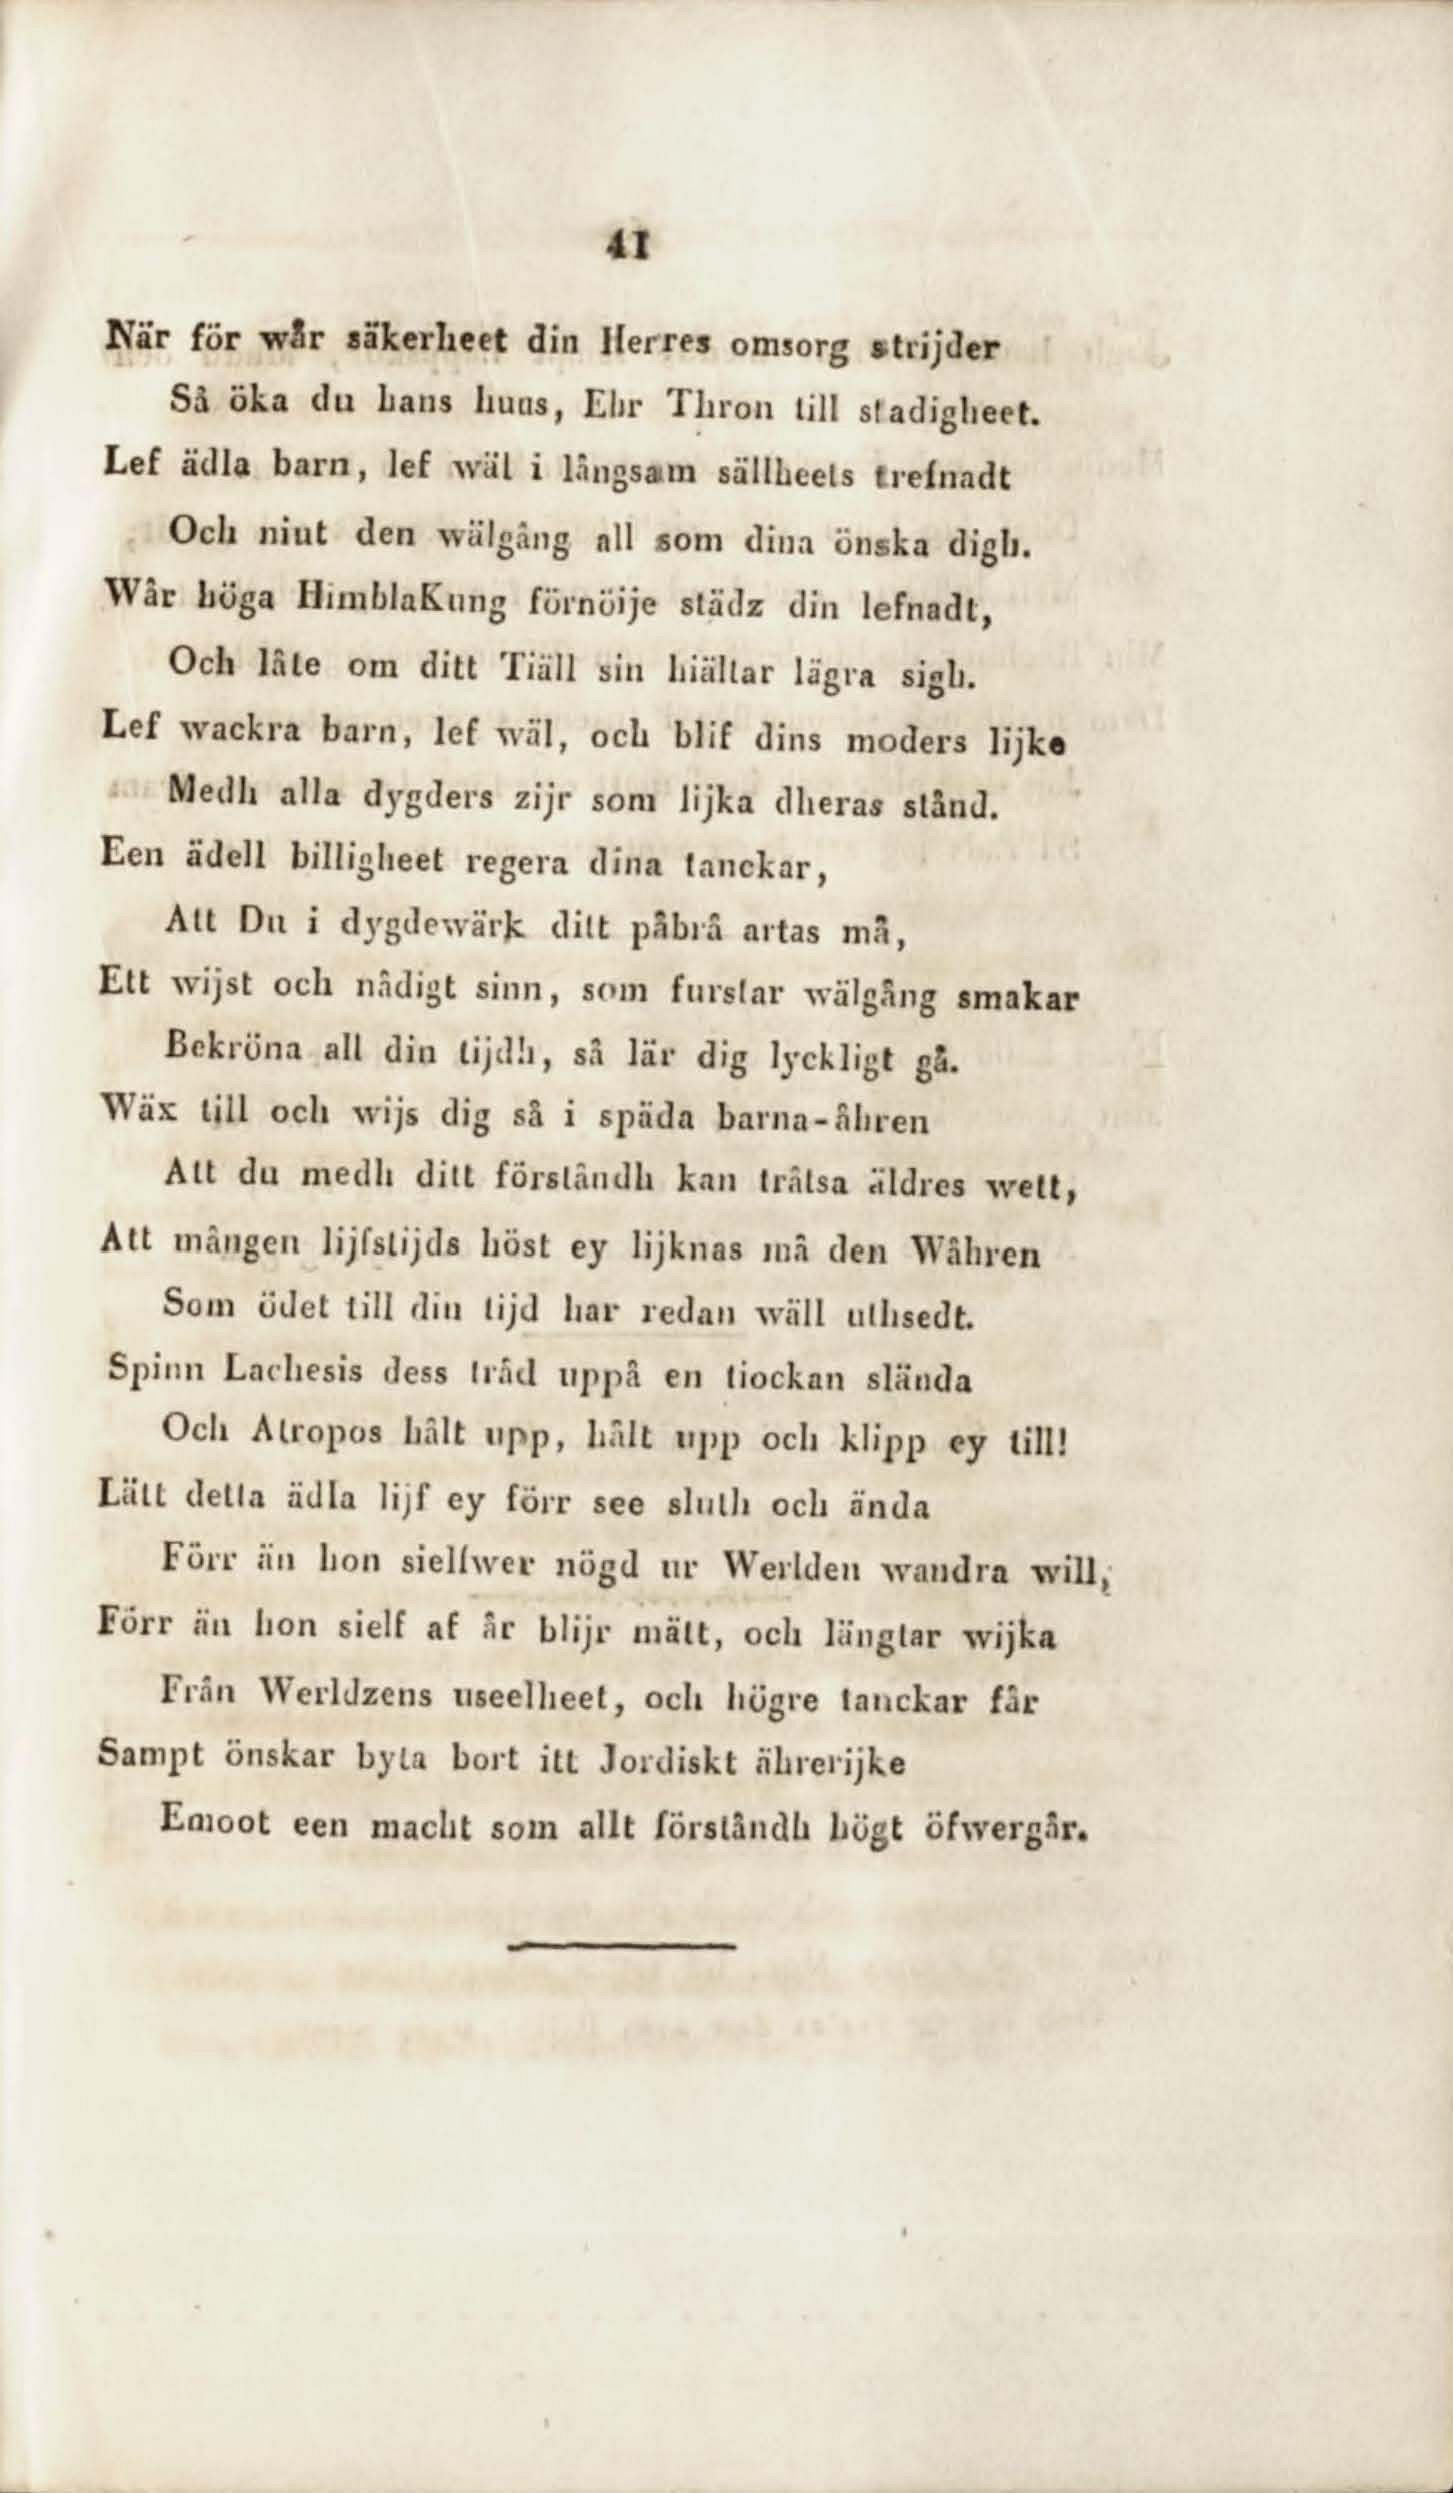 41
När för wår säkerheet din Herres omsorg strijder
Så öka du hans huus, Ehr Thron till stadigheet.
Lef ädla barn, lef wäl i långsam sällheets trefnadt
Och niut den wälgång all som dina önska digh.
Wår höga HimblaKung förnöije städz din lefnadt,
Och låte om ditt Tiäll sin hiältar lägra sigh.
Lef wackra barn, lef wäl, och blif dins moders lijke
Medh alla dygders zijr som lijka dheras stånd.
Een ädell billigheet regera dina tanckar,
Att Du i dygdewärk ditt påbrå artas må,
Ett wijst och nådigt sinn, som furstar wälgång smakar
Bekröna all din tijdh, så lär dig lyckligt gå.
Wäx till och wijs dig så i späda barna-åhren
Att du medh ditt förståndh kan tråtsa äldres wett,
Att mången lijfstijds höst ey lijknas må den Wåhren
Som ödet till din tijd har redan wäll uthsedt.
Spinn Lachesis dess tråd uppå en tiockan slända
Och Atropos hålt upp, hålt upp och klipp ey till!
Lätt detta ädla lijf ey förr see sluth och ända
Förr än hon sielfwer nögd ur Werlden wandra will,
Förr än hon sielf af år blijr mätt, och längtar wijka
Från Werldzens useelheet, och högre tanckar får
Sampt önskar byta bort itt Jordiskt ährerijke
Emoot een macht som allt förståndh högt öfwergår.